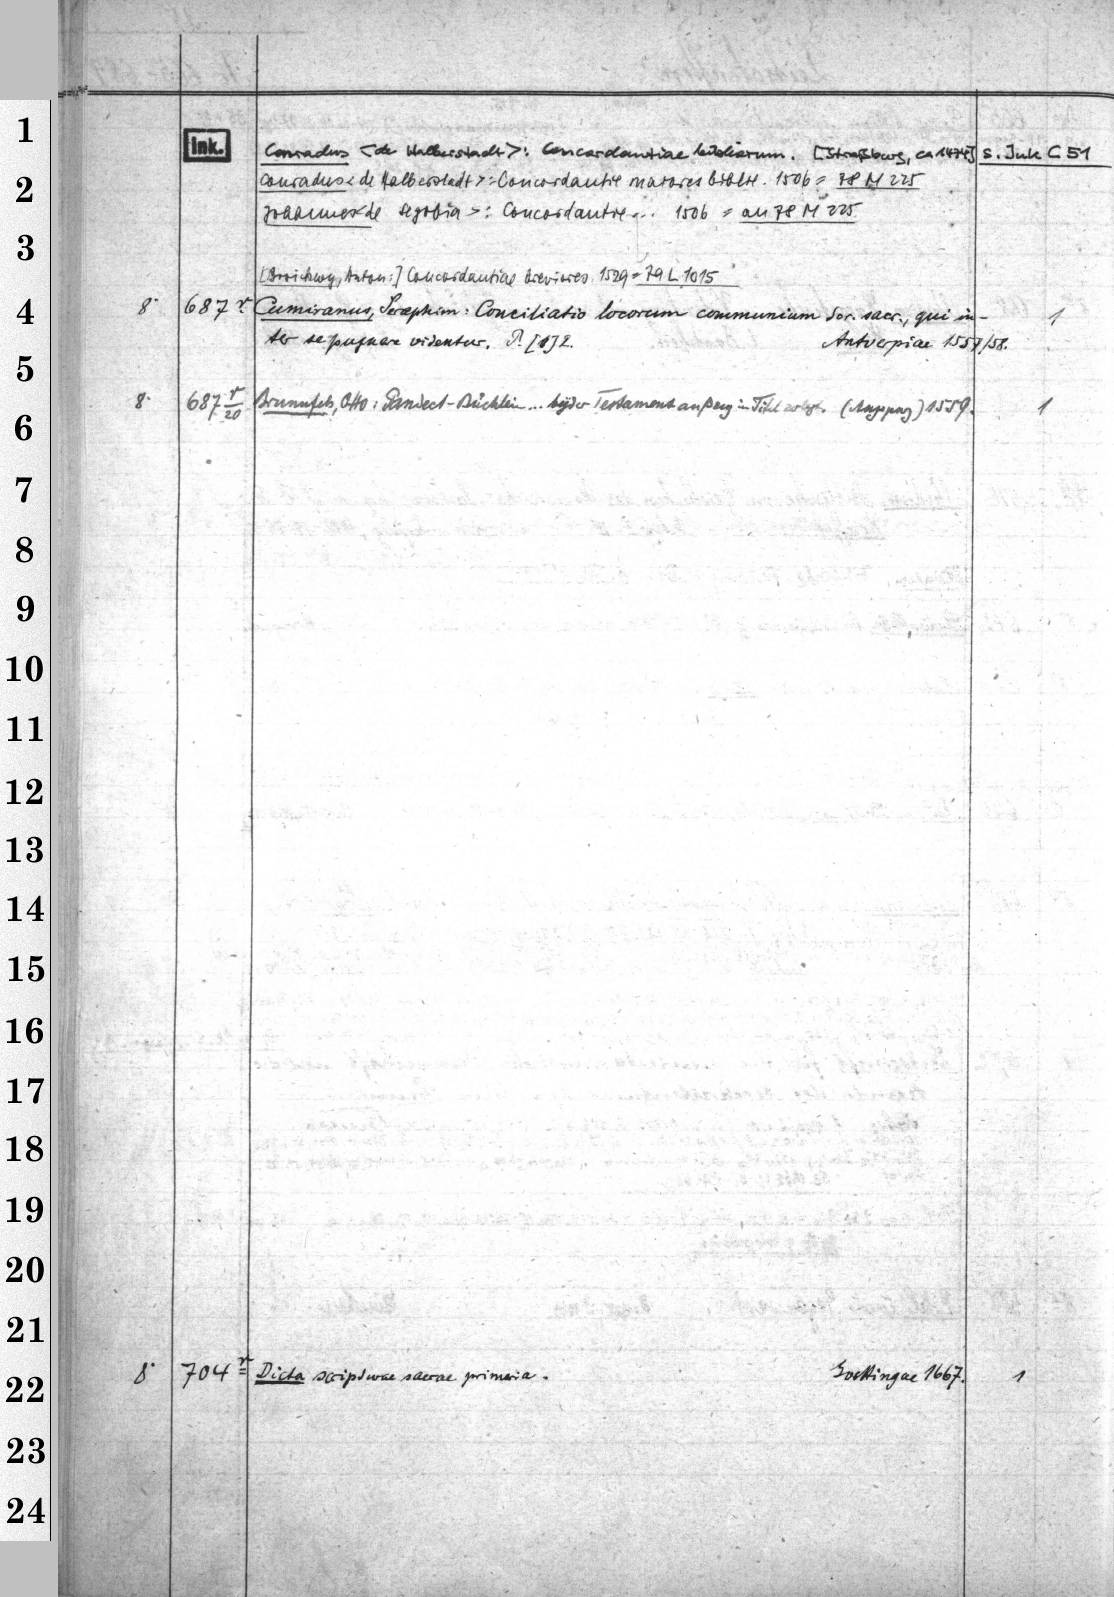 1
Ink. Conradus <de Halberstadt>: Concordantiae bibliorum. [Straßburg, ca 1474] s. Ink C 51
2
Conradus <de Halberstadt>: Concordantie maiores biblie. 1506 = 78 M 225
Johannes <de Segobia>: Concordantie... 1506 = an 78 M 225
3
[Broickwy, Anton:] Concordantiae breviores. 1529 = 79 L 1015
4
8° 687 r Cumiranus, Seraphim: Conciliatio locorum communium Scr. sacr., qui in-
ter se pugnare videntur. P. [1] 2. Antverpiae 1557/58. 1
5
8° 687 r/20 Brunnfels, Otto: Pandect-Büchlein ... beyder Testament (Augspurg) 1559. 1
6
7
8
9
10
11
12
13
14
15
16
17
18
19
20
21
22
8° 704 r Dicta scripturae sacrae primaria. Goettingae 1667. 1
23
24